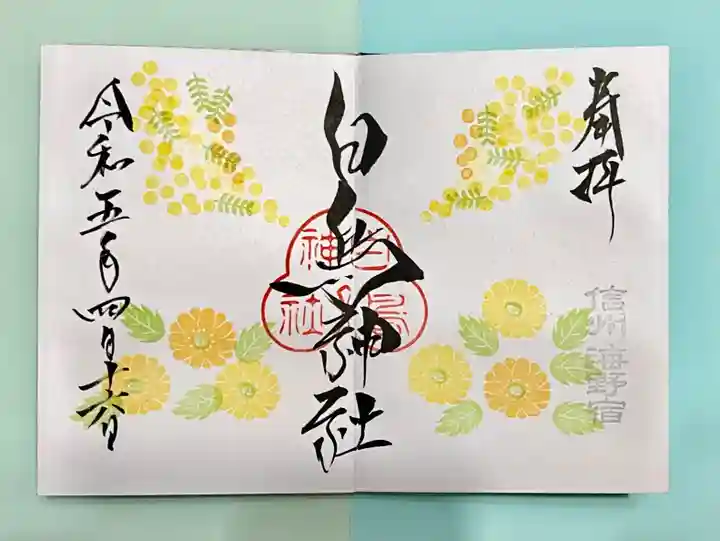 奉拝
信州海野宿
白鳥神社
白鳥神社
令和五年四月十六日